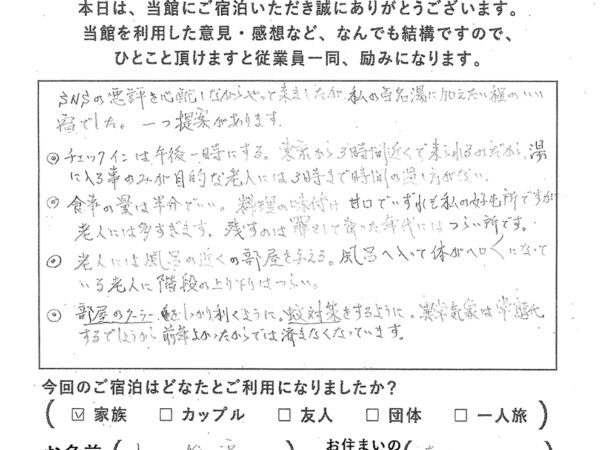 本日は、当館にご宿泊いただき誠にありがとうございます。
当館を利用した意見・感想など、なんでも結構ですので、
ひとこと頂けますと従業員一同、励みになります。
SNSの悪評を心配しながらやって来ましたが、私の有名湯に加えたい程のいい
宿でした。一つ提案があります。
◎チェックインは午後一時にする。東京から3時間近くで来られるのだから、湯
に入る事のみが目的な老人には3時まで時間の過し方がない。
◎食事の量は半分でいい。料理の味付け 甘口でいずれも私の好む所ですが
老人には多すぎます。残すのは罪として育った年代にはつらい所です。
◎老人には風呂の近くの部屋を与える。風呂へ入って体がヘロヘロになって
いる老人に階段の上り下りはつらい。
◎部屋のクーラーをしっかり利くように。蚊対策をするように。異常気象は常態化
するでしょうから前年よかったからでは済まなくなっています。
今回のご宿泊はどなたとご利用になりましたか?
( ☑ 家族 □ カップル □ 友人 □ 団体 □ 一人旅 )
お名前 ( お住まいの